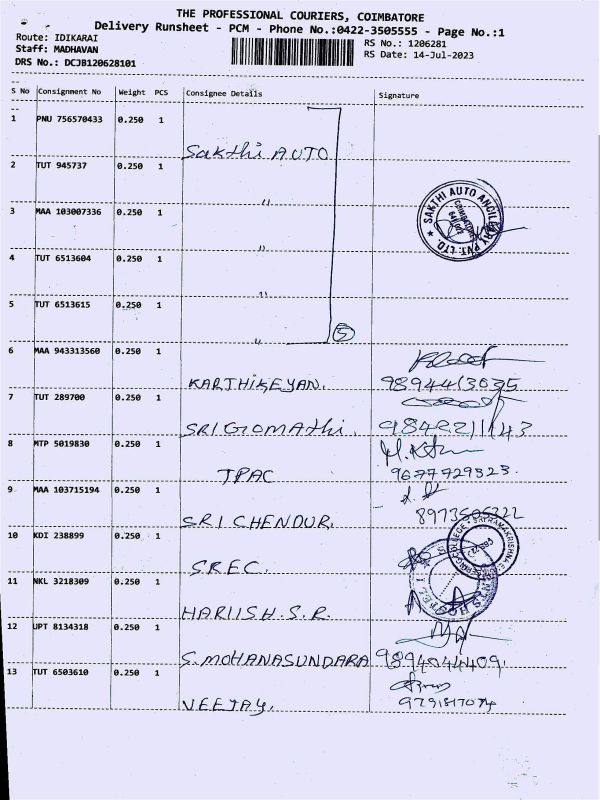 THE PROFESSIONAL COURIERS, COIMBATORE
Delivery Runsheet - PCM - Phone No.:0422-3505555 - Page No.:1
Route: IDIKARAI
RS No.: 1206281
Staff: MADHAVAN
RS Date: 14-Jul-2023
DRS No.: DCJB120628101
S No Consignment No Weight PCS Consignee Details Signature
1 PNU 756570433 0.250 1
Sakthi AUTO
2 TUT 945737 0.250 1
"
3 MAA 103007336 0.250 1
SAKTHI AUTO ANCILLARY PVT. LTD. ★
COIMBATORE
"
4 TUT 6513604 0.250 1
"
5 TUT 6513615 0.250 1
" 5
6 MAA 943313560 0.250 1
KARTHIKEYAN. 9894413035
7 TUT 289700 0.250 1
SRI GOMATHI. 9842211143
8 MTP 5019830 0.250 1
TPAC 9677729523.
9 MAA 103715194 0.250 1
SRI CHENDUR.
10 KDI 238899 0.250 1
SREC.
11 NKL 3218309 0.250 1
HARIISH.S.R.
12 UPT 8134318 0.250 1
S.MOHANASUNDARA 9894044409.
13 TUT 6503610 0.250 1
VEEJAY.